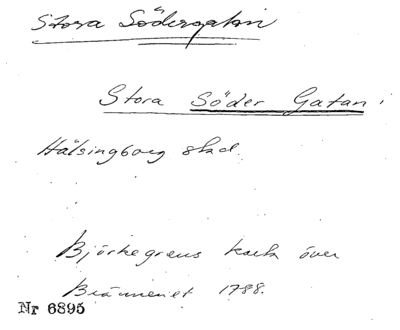 Stora Södergatan
Stora Söder Gatan i
Hälsingborg stad.
Björkegrens karta över
Bränneriet 1788.
Nr 6895